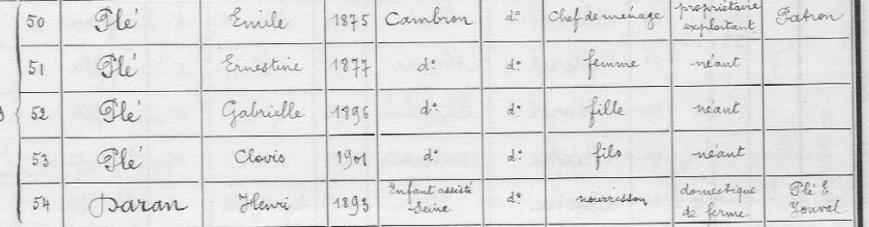 50 Plé Emile 1875 Cambron d° Chef de ménage propriétaire exploitant Patron
51 Plé Ernestine 1877 d° d° femme néant
52 Plé Gabrielle 1896 d° d° fille néant
53 Plé Clovis 1901 d° d° fils néant
54 Daran Henri 1893 Enfant assisté Seine d° nourrisson domestique de ferme Plé E.